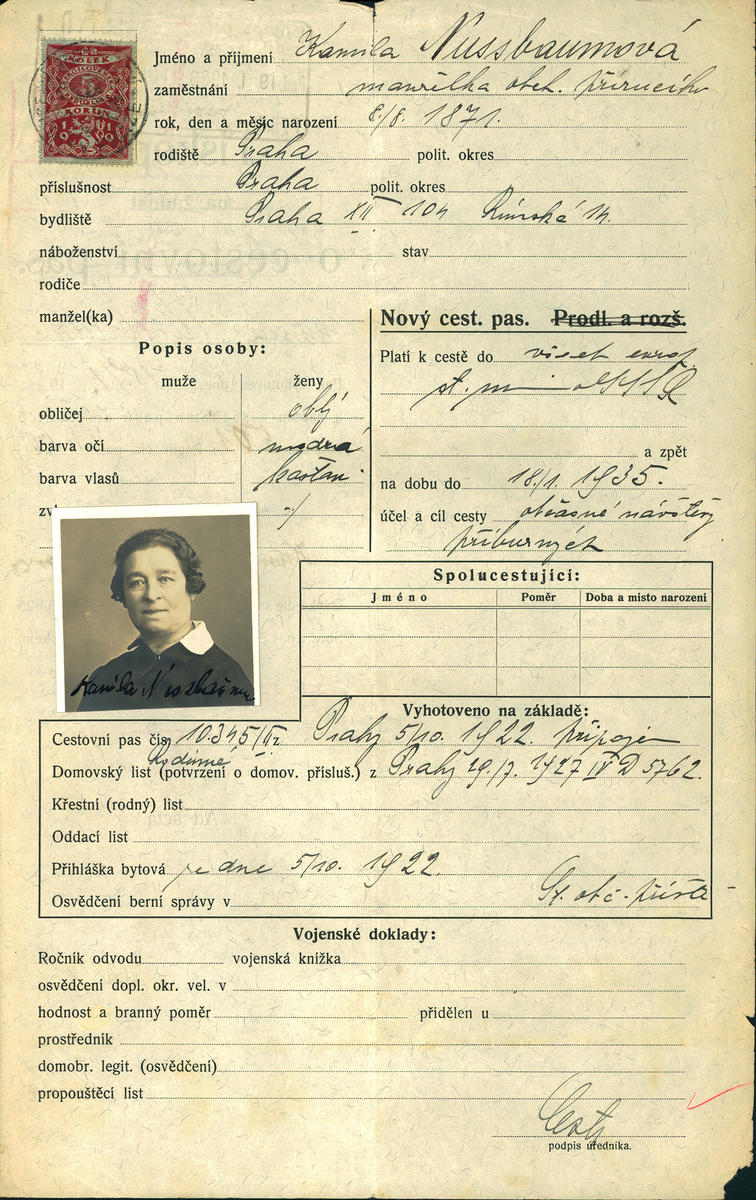 KOLEK
5
KORUN
1919
Jméno a příjmení Kamila Nussbaumová
zaměstnání manželka obch. příručího
rok, den a měsíc narození 8./8. 1871.
rodiště Praha polit. okres
příslušnost Praha polit. okres
bydliště Praha XII 104 Římská 14.
náboženství stav
rodiče
manžel(ka)
Nový cest. pas. Prodl. a rozš.
Popis osoby:
muže ženy
obličej oblý
barva očí modrá
barva vlasů kaštan
zv
Platí k cestě do všech evrop
st.
a zpět
na dobu do 18./1. 1935.
účel a cíl cesty občasné návštěvy
příbuzných
Kamila Nussbaumová
Spolucestující:
Jméno Poměr Doba a místo narození
Vyhotoveno na základě:
Cestovní pas čís. 10.345/II z Prahy 5/10. 1922. připojen
Rodinné
Domovský list (potvrzení o domov. přísluš.) z Prahy 29./7. 1927 IV D 5762.
Křestní (rodný) list
Oddací list
Přihláška bytová ze dne 5/10. 1922.
Osvědčení berní správy v St. obč.
Vojenské doklady:
Ročník odvodu vojenská knížka
osvědčení dopl. okr. vel. v
hodnost a branný poměr přidělen u
prostředník
domobr. legit. (osvědčení)
propouštěcí list
podpis úředníka.